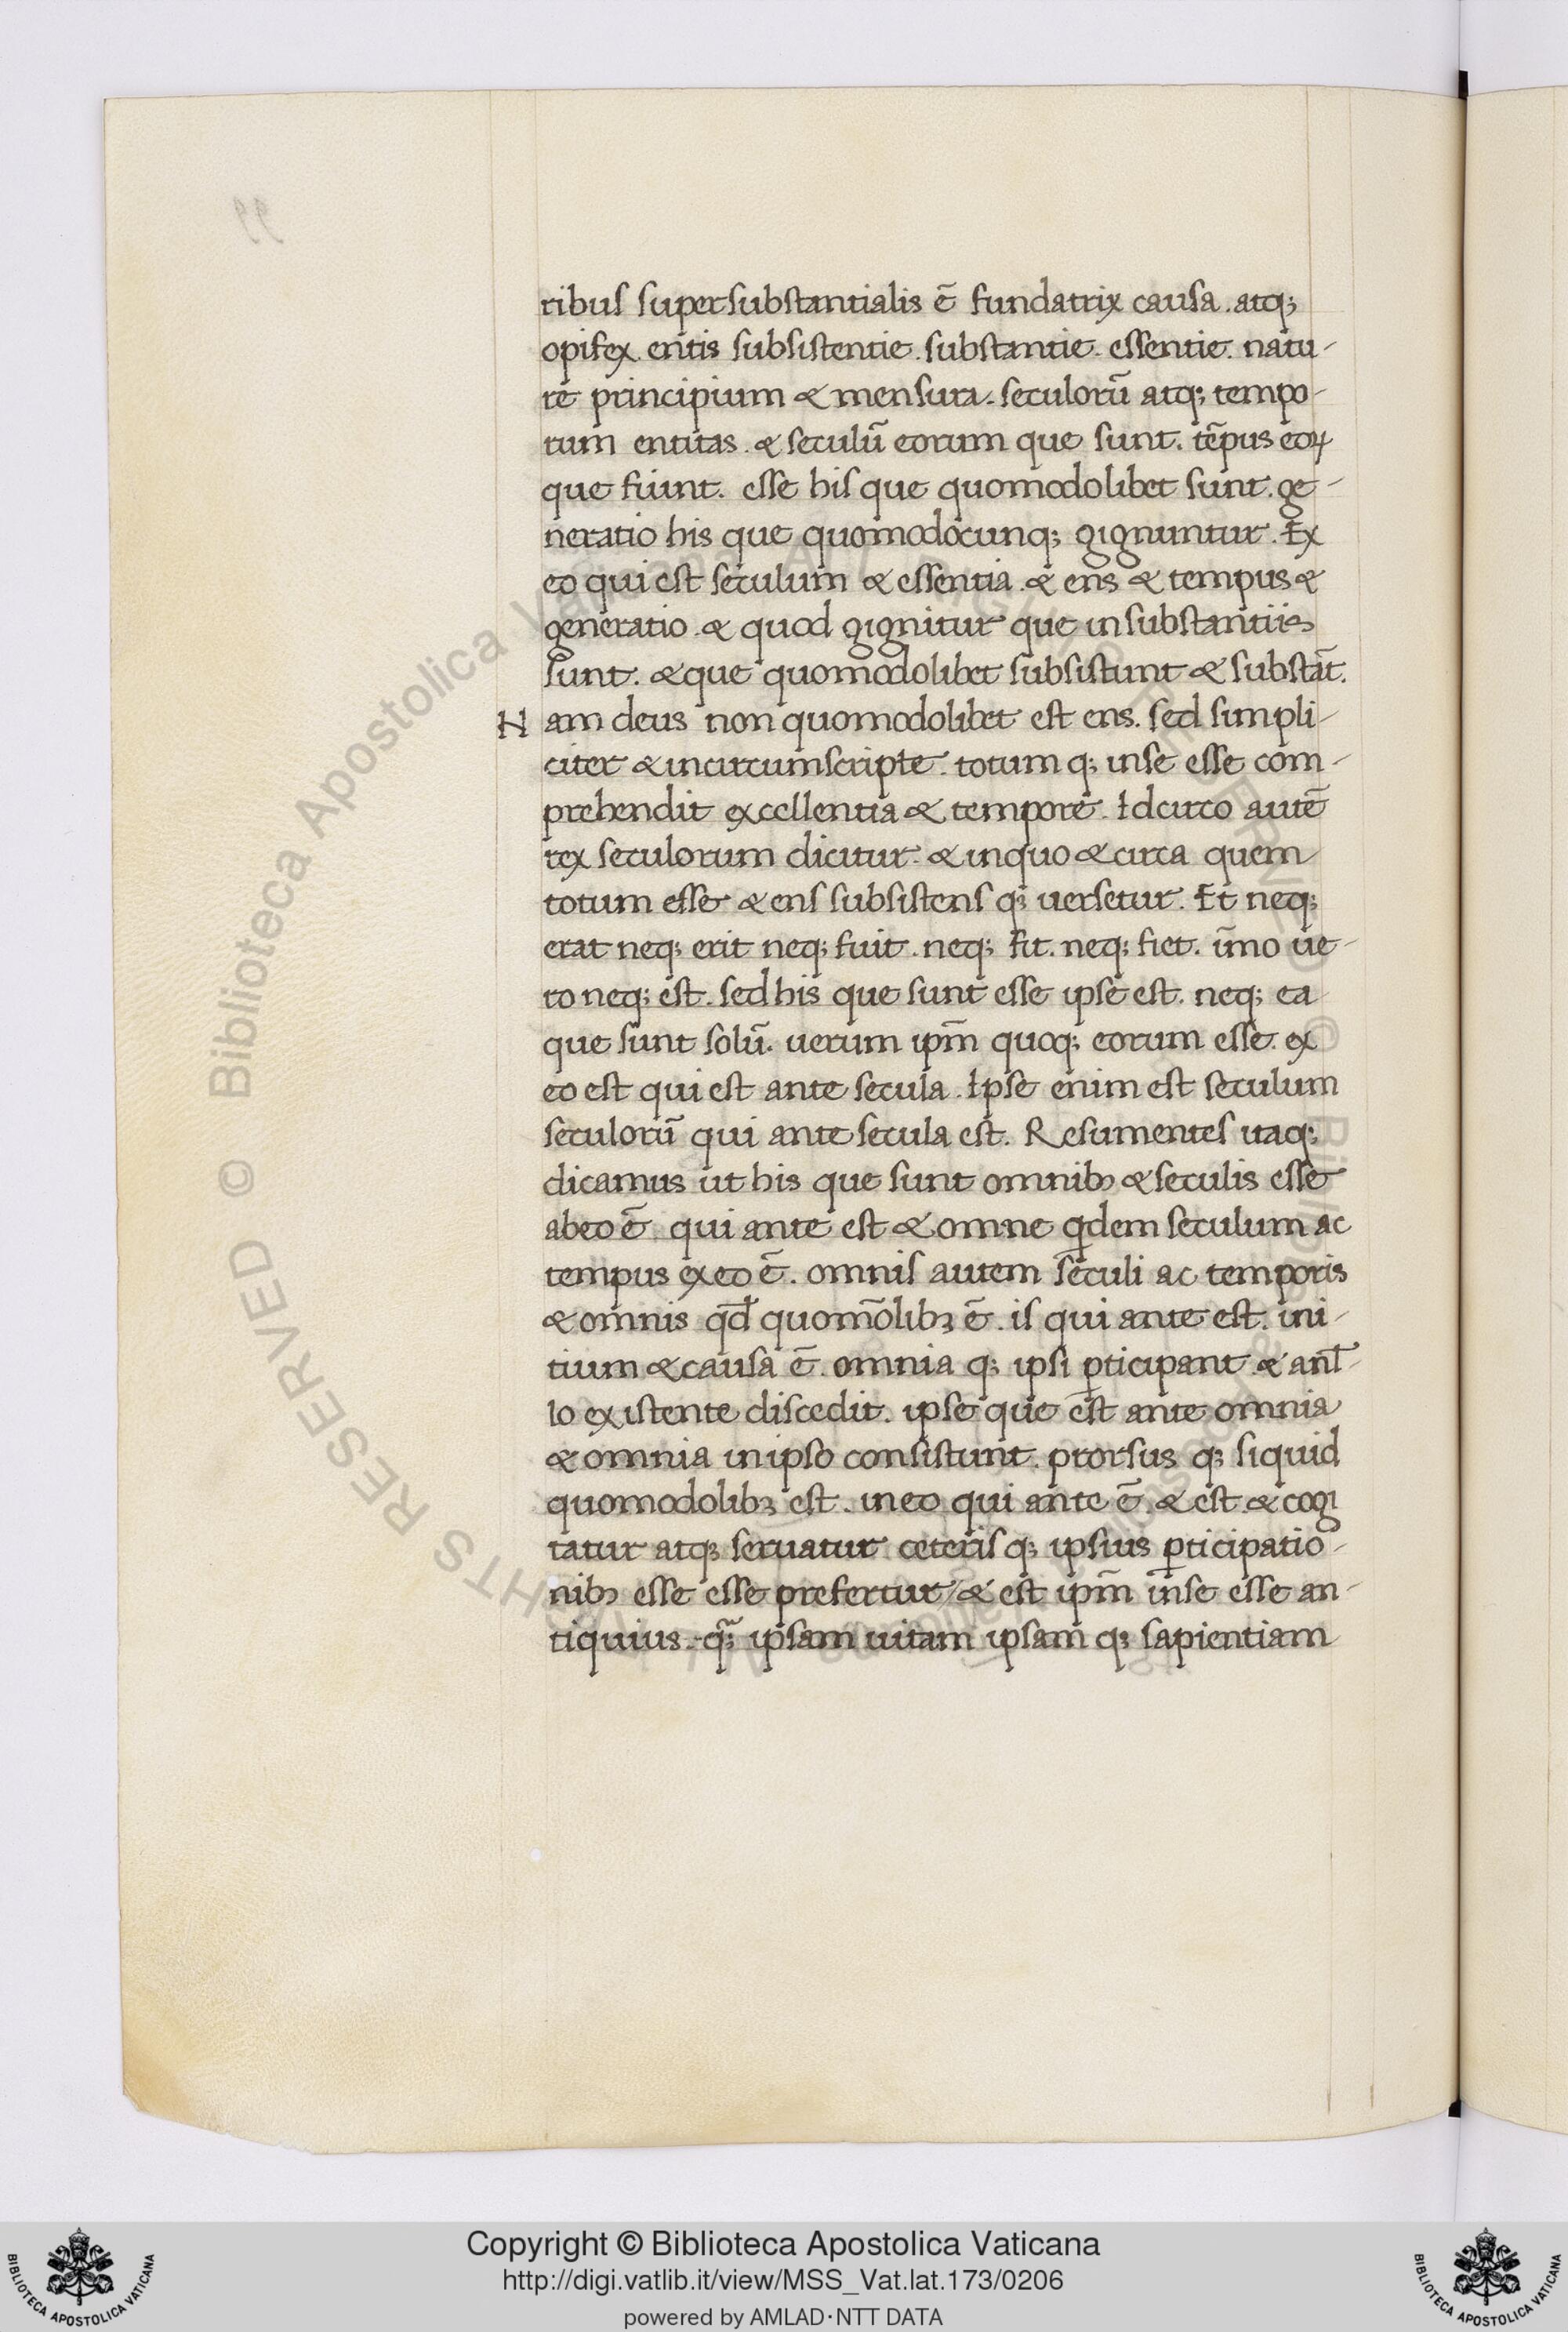 ribuſ ſuperſubſtantialis ē fundatrix cauſa . atq;
opifex . entis ſubſiſtentie . ſubſtantie . eſſentie . natu-
re principium & menſura . ſeculorū atq; tempo-
rum entitas . & ſeculū eorum que ſunt . tēpus eoꝝ
que fiunt . eſſe hiſ que quomodolibet ſunt . ge-
neratio his que quomodocunq; gignuntur . Ex
eo qui est ſeculum & eſſentia . & ens & tempus &
generatio . & quod gignitur que in ſubſtantiis
ſunt . & que quomodolibet ſubſiſtunt & ſubſtāt .
N am deus non quomodolibet eſt ens . ſed ſimpli-
citer & incircumſcripte . totum q; inſe eſſe com-
prehendit excellentia & tempore . Idcirco autē
rex ſeculorum dicitur . & inquo & circa quem
totum eſſe & enſ ſubſiſtenſ q; uerſetur . Et neq;
erat neq; erit neq; fuit . neq; fit . neq; fiet . īmo ue-
ro neq; eſt . ſed his que ſunt eſſe ipſe eſt . neq; ea
que ſunt ſolū . uerum ipm̄ quoq; eorum eſſe . ex
eo eſt qui eſt ante ſecula . Ipſe enim eſt ſeculum
ſeculorū qui ante ſecula eſt . Reſumenteſ itaq;
dicamus ut his que ſunt omnibꝰ & ſeculis eſſe
abeo ē . qui ante eſt & omne qͥdem ſeculum ac
tempus ex eo ē . omniſ autem ſeculi ac temporis
& omnis qđ quom̄olibꝫ ē . iſ qui ante eſt . ini-
tium & cauſa ē . omnia q; ipſi ꝑticipant & anł-
lo existente diſcedit . ipſe que eſt ante omnia
& omnia in ipſo conſiſtunt . prorſus q; ſiquid
quomodolibꝫ eſt . in eo qui ante ē . & eſt & cogi
tatur atq; ſeruatur . ceteriſ q; ipſius ꝑticipatio-
nibꝰ eſſe eſſe prefertur / & eſt ipm̄ īnſe eſſe an-
tiquius . q̄; ipſam uitam ipſam q; ſapientiam
Copyright © Biblioteca Apostolica Vaticana
http://digi.vatlib.it/view/MSS_Vat.lat.173/0206
powered by AMLAD·NTT DATA
BIBLIOTECA APOSTOLICA VATICANA
BIBLIOTECA APOSTOLICA VATICANA